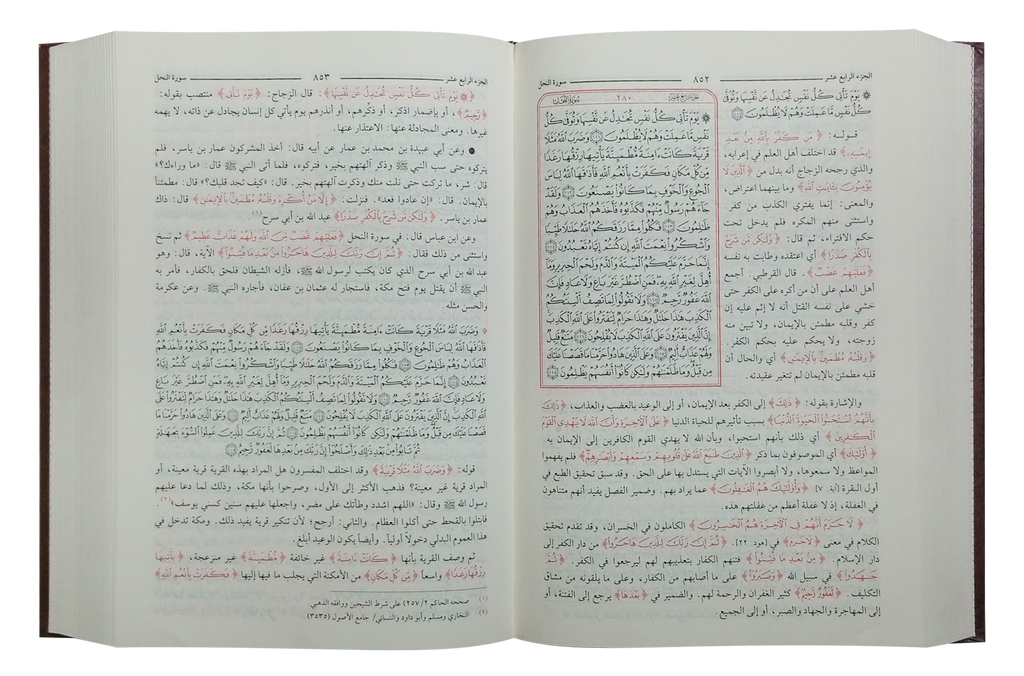 الجزء الرابع عشر ٨٥٢ سورة النحل
﴿۞ يَوْمَ تَأْتِي كُلُّ نَفْسٍ تُجَٰدِلُ عَن نَّفْسِهَا وَتُوَفَّىٰ
كُلُّ نَفْسٍ مَّا عَمِلَتْ وَهُمْ لَا يُظْلَمُونَ
قوله: ﴿مَن كَفَرَ بِاللَّهِ مِنۢ بَعْدِ
إِيمَٰنِهِۦ﴾ قد اختلف أهل العلم في إعرابه،
والذي رجحه الزجاج أنه بدل من ﴿الَّذِينَ لَا
يُؤْمِنُونَ بِـَٔايَٰتِ اللَّهِ﴾ وما بينهما اعتراض،
والمعنى: إنما يفتري الكذب من كفر.
واستثنى منهم المكره فلم يدخل تحت
حكم الافتراء، ثم قال: ﴿وَلَٰكِن مَّن شَرَحَ
بِالْكُفْرِ صَدْرًا﴾ أي اعتقده وطابت به نفسه
﴿فَعَلَيْهِمْ غَضَبٌ﴾. قال القرطبي: أجمع
أهل العلم على أن من أكره على الكفر حتى
خشي على نفسه القتل أنه لا إثم عليه إن
كفر وقلبه مطمئن بالإيمان، ولا تبين منه
زوجته، ولا يحكم عليه بحكم الكفر.
﴿وَقَلْبُهُۥ مُطْمَئِنٌّۢ بِالْإِيمَٰنِ﴾ أي والحال أن
قلبه مطمئن بالإيمان لم تتغير عقيدته.
سورة النحل ٢٨٠ الجزء الرابع عشر
۞ يَوْمَ تَأْتِي كُلُّ نَفْسٍ تُجَٰدِلُ عَن نَّفْسِهَا وَتُوَفَّىٰ كُلُّ
نَفْسٍ مَّا عَمِلَتْ وَهُمْ لَا يُظْلَمُونَ ١١١ وَضَرَبَ اللَّهُ مَثَلًا
قَرْيَةً كَانَتْ ءَامِنَةً مُّطْمَئِنَّةً يَأْتِيهَا رِزْقُهَا رَغَدًا
مِّن كُلِّ مَكَانٍ فَكَفَرَتْ بِأَنْعُمِ اللَّهِ فَأَذَٰقَهَا اللَّهُ لِبَاسَ
الْجُوعِ وَالْخَوْفِ بِمَا كَانُوا۟ يَصْنَعُونَ ١١٢ وَلَقَدْ
جَآءَهُمْ رَسُولٌ مِّنْهُمْ فَكَذَّبُوهُ فَأَخَذَهُمُ الْعَذَابُ وَهُمْ
ظَٰلِمُونَ ١١٣ فَكُلُوا۟ مِمَّا رَزَقَكُمُ اللَّهُ حَلَٰلًا طَيِّبًا
وَاشْكُرُوا۟ نِعْمَتَ اللَّهِ إِن كُنتُمْ إِيَّاهُ تَعْبُدُونَ ١١٤
إِنَّمَا حَرَّمَ عَلَيْكُمُ الْمَيْتَةَ وَالدَّمَ وَلَحْمَ الْخِنزِيرِ وَمَآ
أُهِلَّ لِغَيْرِ اللَّهِ بِهِۦ فَمَنِ اضْطُرَّ غَيْرَ بَاغٍ وَلَا عَادٍ فَإِنَّ
اللَّهَ غَفُورٌ رَّحِيمٌ ١١٥ وَلَا تَقُولُوا۟ لِمَا تَصِفُ أَلْسِنَتُكُمُ
الْكَذِبَ هَٰذَا حَلَٰلٌ وَهَٰذَا حَرَامٌ لِّتَفْتَرُوا۟ عَلَى اللَّهِ الْكَذِبَ
إِنَّ الَّذِينَ يَفْتَرُونَ عَلَى اللَّهِ الْكَذِبَ لَا يُفْلِحُونَ ١١٦ مَتَٰعٌ قَلِيلٌ
وَلَهُمْ عَذَابٌ أَلِيمٌ ١١٧ وَعَلَى الَّذِينَ هَادُوا۟ حَرَّمْنَا مَا قَصَصْنَا عَلَيْكَ
مِن قَبْلُ وَمَا ظَلَمْنَٰهُمْ وَلَٰكِن كَانُوٓا۟ أَنفُسَهُمْ يَظْلِمُونَ ١١٨
والإشارة بقوله: ﴿ذَٰلِكَ﴾ إلى الكفر بعد الإيمان، أو إلى الوعيد بالغضب والعذاب، ﴿ذَٰلِكَ
بِأَنَّهُمُ اسْتَحَبُّوا۟ الْحَيَوٰةَ الدُّنْيَا﴾ بسبب تأثيرهم للحياة الدنيا ﴿عَلَى الْـَٔاخِرَةِ وَأَنَّ اللَّهَ لَا يَهْدِي الْقَوْمَ
الْكَٰفِرِينَ﴾ أي ذلك بأنهم استحبوا، وبأن الله لا يهدي القوم الكافرين إلى الإيمان به.
﴿أُو۟لَٰٓئِكَ﴾ أي الموصوفون بما ذكر ﴿الَّذِينَ طَبَعَ اللَّهُ عَلَىٰ قُلُوبِهِمْ وَسَمْعِهِمْ وَأَبْصَٰرِهِمْ﴾ فلم يفهموا
المواعظ ولا سمعوها، ولا أبصروا الآيات التي يستدل بها على الحق. وقد سبق تحقيق الطبع في
أول البقرة [آية: ٧] ﴿وَأُو۟لَٰٓئِكَ هُمُ الْغَٰفِلُونَ﴾ عما يراد بهم. وضمير الفصل يفيد أنهم متناهون
في الغفلة، إذ لا غفلة أعظم من غفلتهم هذه.
﴿لَا جَرَمَ أَنَّهُمْ فِي الْـَٔاخِرَةِ هُمُ الْخَٰسِرُونَ﴾ الكاملون في الخسران، وقد تقدم تحقيق
الكلام في معنى ﴿لَا جَرَمَ﴾ في [هود: ٢٢]. ﴿ثُمَّ إِنَّ رَبَّكَ لِلَّذِينَ هَاجَرُوا۟﴾ من دار الكفر إلى
دار الإسلام. ﴿مِنۢ بَعْدِ مَا فُتِنُوا۟﴾ فتنهم الكفار بتعذيبهم لهم ليرجعوا في الكفر. ﴿ثُمَّ
جَٰهَدُوا۟﴾ في سبيل الله ﴿وَصَبَرُوٓا۟﴾ على ما أصابهم من الكفار، وعلى ما يلقونه من مشاق
التكليف. ﴿لَغَفُورٌ رَّحِيمٌ﴾ كثير الغفران والرحمة لهم. والضمير في ﴿بَعْدِهَا﴾ يرجع إلى الفتنة، أو
إلى المهاجرة والجهاد والصبر، أو إلى الجميع.
الجزء الرابع عشر ٨٥٣ سورة النحل
﴿۞ يَوْمَ تَأْتِي كُلُّ نَفْسٍ تُجَٰدِلُ عَن نَّفْسِهَا﴾: قال الزجاج: ﴿يَوْمَ تَأْتِي﴾ منتصب بقوله:
﴿رَّحِيمٌ﴾، أو بإضمار اذكر، أو ذكّرهم، أو أنذرهم يوم يأتي كل إنسان يجادل عن ذاته، لا يهمه
غيرها. ومعنى المجادلة عنها: الاعتذار عنها.
● وعن أبي عبيدة بن محمد بن عمار عن أبيه قال: أخذ المشركون عمار بن ياسر، فلم
يتركوه حتى سب النبي ﷺ وذكر آلهتهم بخير، فتركوه، فلما أتى النبي ﷺ قال: «ما وراءك؟»
قال: شر، ما تركت حتى نلت منك وذكرت آلهتهم بخير. قال: «كيف تجد قلبك؟» قال: مطمئناً
بالإيمان. قال: «إن عادوا فعد». فنزلت: ﴿إِلَّا مَنْ أُكْرِهَ وَقَلْبُهُۥ مُطْمَئِنٌّۢ بِالْإِيمَٰنِ﴾ قال: ذاك
عمار بن ياسر. ﴿وَلَٰكِن مَّن شَرَحَ بِالْكُفْرِ صَدْرًا﴾ عبد الله بن أبي سرح(١).
وعن ابن عباس قال: في سورة النحل ﴿فَعَلَيْهِمْ غَضَبٌ مِّنَ اللَّهِ وَلَهُمْ عَذَابٌ عَظِيمٌ﴾ ثم نسخ
واستثنى من ذلك فقال: ﴿ثُمَّ إِنَّ رَبَّكَ لِلَّذِينَ هَاجَرُوا۟ مِنۢ بَعْدِ مَا فُتِنُوا۟﴾ الآية، قال: وهو
عبد الله بن أبي سرح الذي كان يكتب لرسول الله ﷺ، فأزله الشيطان فلحق بالكفار، فأمر به
النبي ﷺ أن يقتل يوم فتح مكة، فاستجار له عثمان بن عفان، فأجاره النبي ﷺ. وعن عكرمة
والحسن مثله.
﴿وَضَرَبَ اللَّهُ مَثَلًا قَرْيَةً كَانَتْ ءَامِنَةً مُّطْمَئِنَّةً يَأْتِيهَا رِزْقُهَا رَغَدًا مِّن كُلِّ مَكَانٍ فَكَفَرَتْ بِأَنْعُمِ اللَّهِ
فَأَذَٰقَهَا اللَّهُ لِبَاسَ الْجُوعِ وَالْخَوْفِ بِمَا كَانُوا۟ يَصْنَعُونَ وَلَقَدْ جَآءَهُمْ رَسُولٌ مِّنْهُمْ فَكَذَّبُوهُ فَأَخَذَهُمُ
الْعَذَابُ وَهُمْ ظَٰلِمُونَ فَكُلُوا۟ مِمَّا رَزَقَكُمُ اللَّهُ حَلَٰلًا طَيِّبًا وَاشْكُرُوا۟ نِعْمَتَ اللَّهِ إِن كُنتُمْ إِيَّاهُ
تَعْبُدُونَ إِنَّمَا حَرَّمَ عَلَيْكُمُ الْمَيْتَةَ وَالدَّمَ وَلَحْمَ الْخِنزِيرِ وَمَآ أُهِلَّ لِغَيْرِ اللَّهِ بِهِۦ فَمَنِ اضْطُرَّ غَيْرَ بَاغٍ
وَلَا عَادٍ فَإِنَّ اللَّهَ غَفُورٌ رَّحِيمٌ وَلَا تَقُولُوا۟ لِمَا تَصِفُ أَلْسِنَتُكُمُ الْكَذِبَ هَٰذَا حَلَٰلٌ وَهَٰذَا حَرَامٌ لِّتَفْتَرُوا۟ عَلَى اللَّهِ
الْكَذِبَ إِنَّ الَّذِينَ يَفْتَرُونَ عَلَى اللَّهِ الْكَذِبَ لَا يُفْلِحُونَ مَتَٰعٌ قَلِيلٌ وَلَهُمْ عَذَابٌ أَلِيمٌ وَعَلَى الَّذِينَ هَادُوا۟ حَرَّمْنَا مَا
قَصَصْنَا عَلَيْكَ مِن قَبْلُ وَمَا ظَلَمْنَٰهُمْ وَلَٰكِن كَانُوٓا۟ أَنفُسَهُمْ يَظْلِمُونَ ثُمَّ إِنَّ رَبَّكَ لِلَّذِينَ عَمِلُوا۟ السُّوٓءَ بِجَهَٰلَةٍ
ثُمَّ تَابُوا۟ مِنۢ بَعْدِ ذَٰلِكَ وَأَصْلَحُوٓا۟ إِنَّ رَبَّكَ مِنۢ بَعْدِهَا لَغَفُورٌ رَّحِيمٌ
قوله: ﴿وَضَرَبَ اللَّهُ مَثَلًا قَرْيَةً﴾ وقد اختلف المفسرون هل المراد بهذه القرية قرية معينة، أو
المراد قرية غير معينة؟ فذهب الأكثر إلى الأول، وصرحوا بأنها مكة، وذلك لما دعا عليهم
رسول الله ﷺ وقال: «اللهم اشدد وطأتك على مضر، واجعلها عليهم سنين كسني يوسف»(٢).
فابتلوا بالقحط حتى أكلوا العظام. والثاني: أرجح؛ لأن تنكير قرية يفيد ذلك. ومكة تدخل في
هذا العموم البدلي دخولاً أولياً. وأيضاً يكون الوعيد أبلغ.
ثم وصف القرية بأنها ﴿كَانَتْ ءَامِنَةً﴾ غير خائفة ﴿مُّطْمَئِنَّةً﴾ غير منزعجة، ﴿يَأْتِيهَا
رِزْقُهَا رَغَدًا﴾ واسعاً ﴿مِّن كُلِّ مَكَانٍ﴾ من الأمكنة التي يجلب ما فيها إليها ﴿فَكَفَرَتْ بِأَنْعُمِ اللَّهِ﴾
(١) صححه الحاكم ٢/ ٢٥٧) على شرط الشيخين ووافقه الذهبي.
(٢) البخاري ومسلم وأبو داود والنسائي/ جامع الأصول (٣٥٣٥).